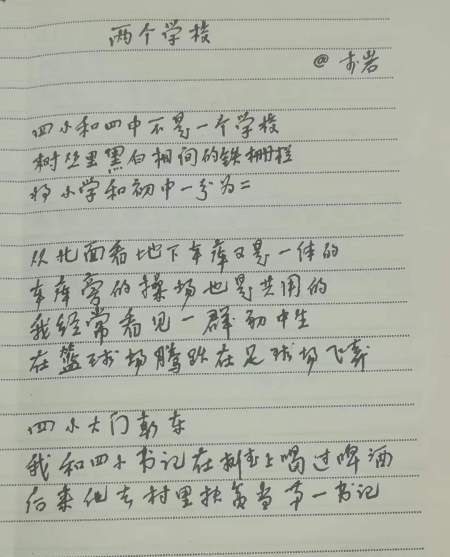 两个学校
@ 岩
四小和四中不是一个学校
树丛里黑白相间的铁栅栏
将小学和初中一分为二
从北面看地下车库又是一体的
车库旁的操场也是共用的
我经常看见一群初中生
在篮球场腾跃在足球场飞奔
四小大门朝东
我和四小书记在桌上喝过啤酒
后来他去村里扶贫当第一书记